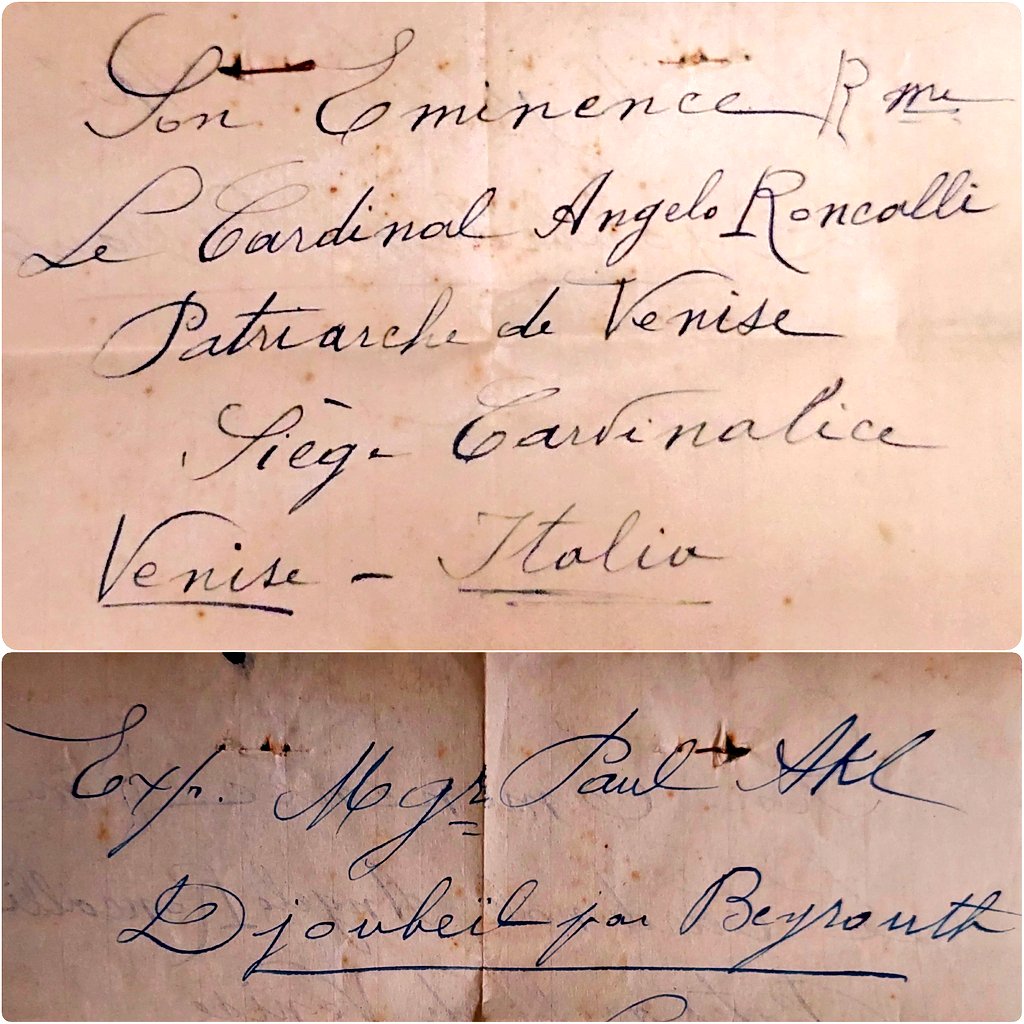 Son Eminence Rme
Le Cardinal Angelo Roncalli
Patriarche de Venise
Siège Cardinalice
Venise - Italia
Exp. Mgr Paul Akl
Djoubeil par Beyrouth